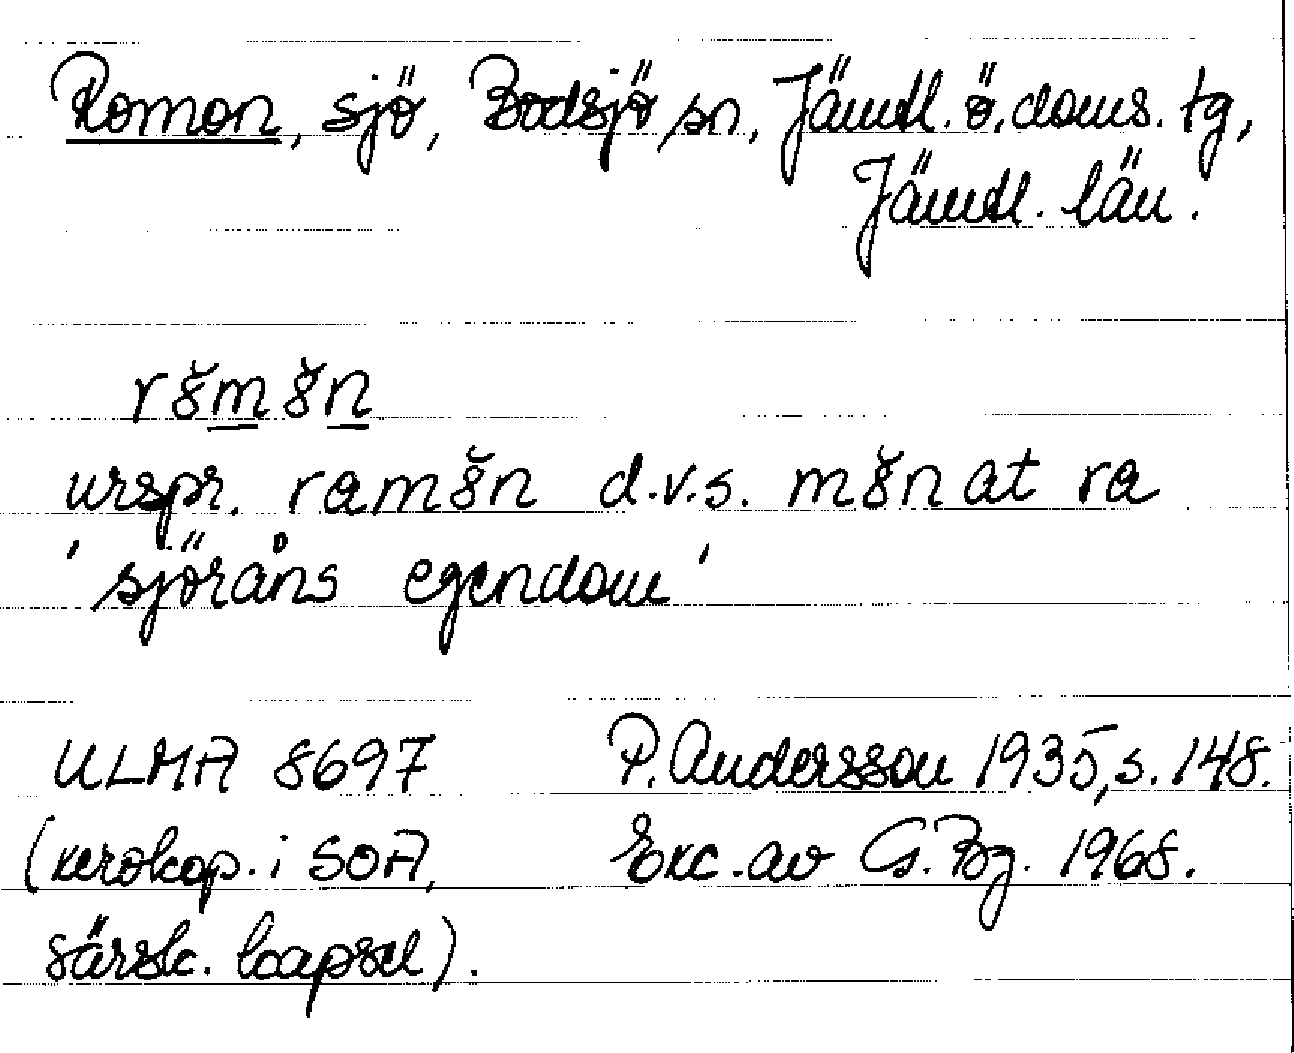 Romon, sjö, Bodsjö sn, Jämtl. ö. doms. tg,
Jämtl. län.
urspr. d.v.s. at ra
'sjöråns egendom'
ULMA 8697 P. Andersson 1935, s. 148.
(xerokop. i SOA, Exc. av G. Bg. 1968.
särsk. kapsel).